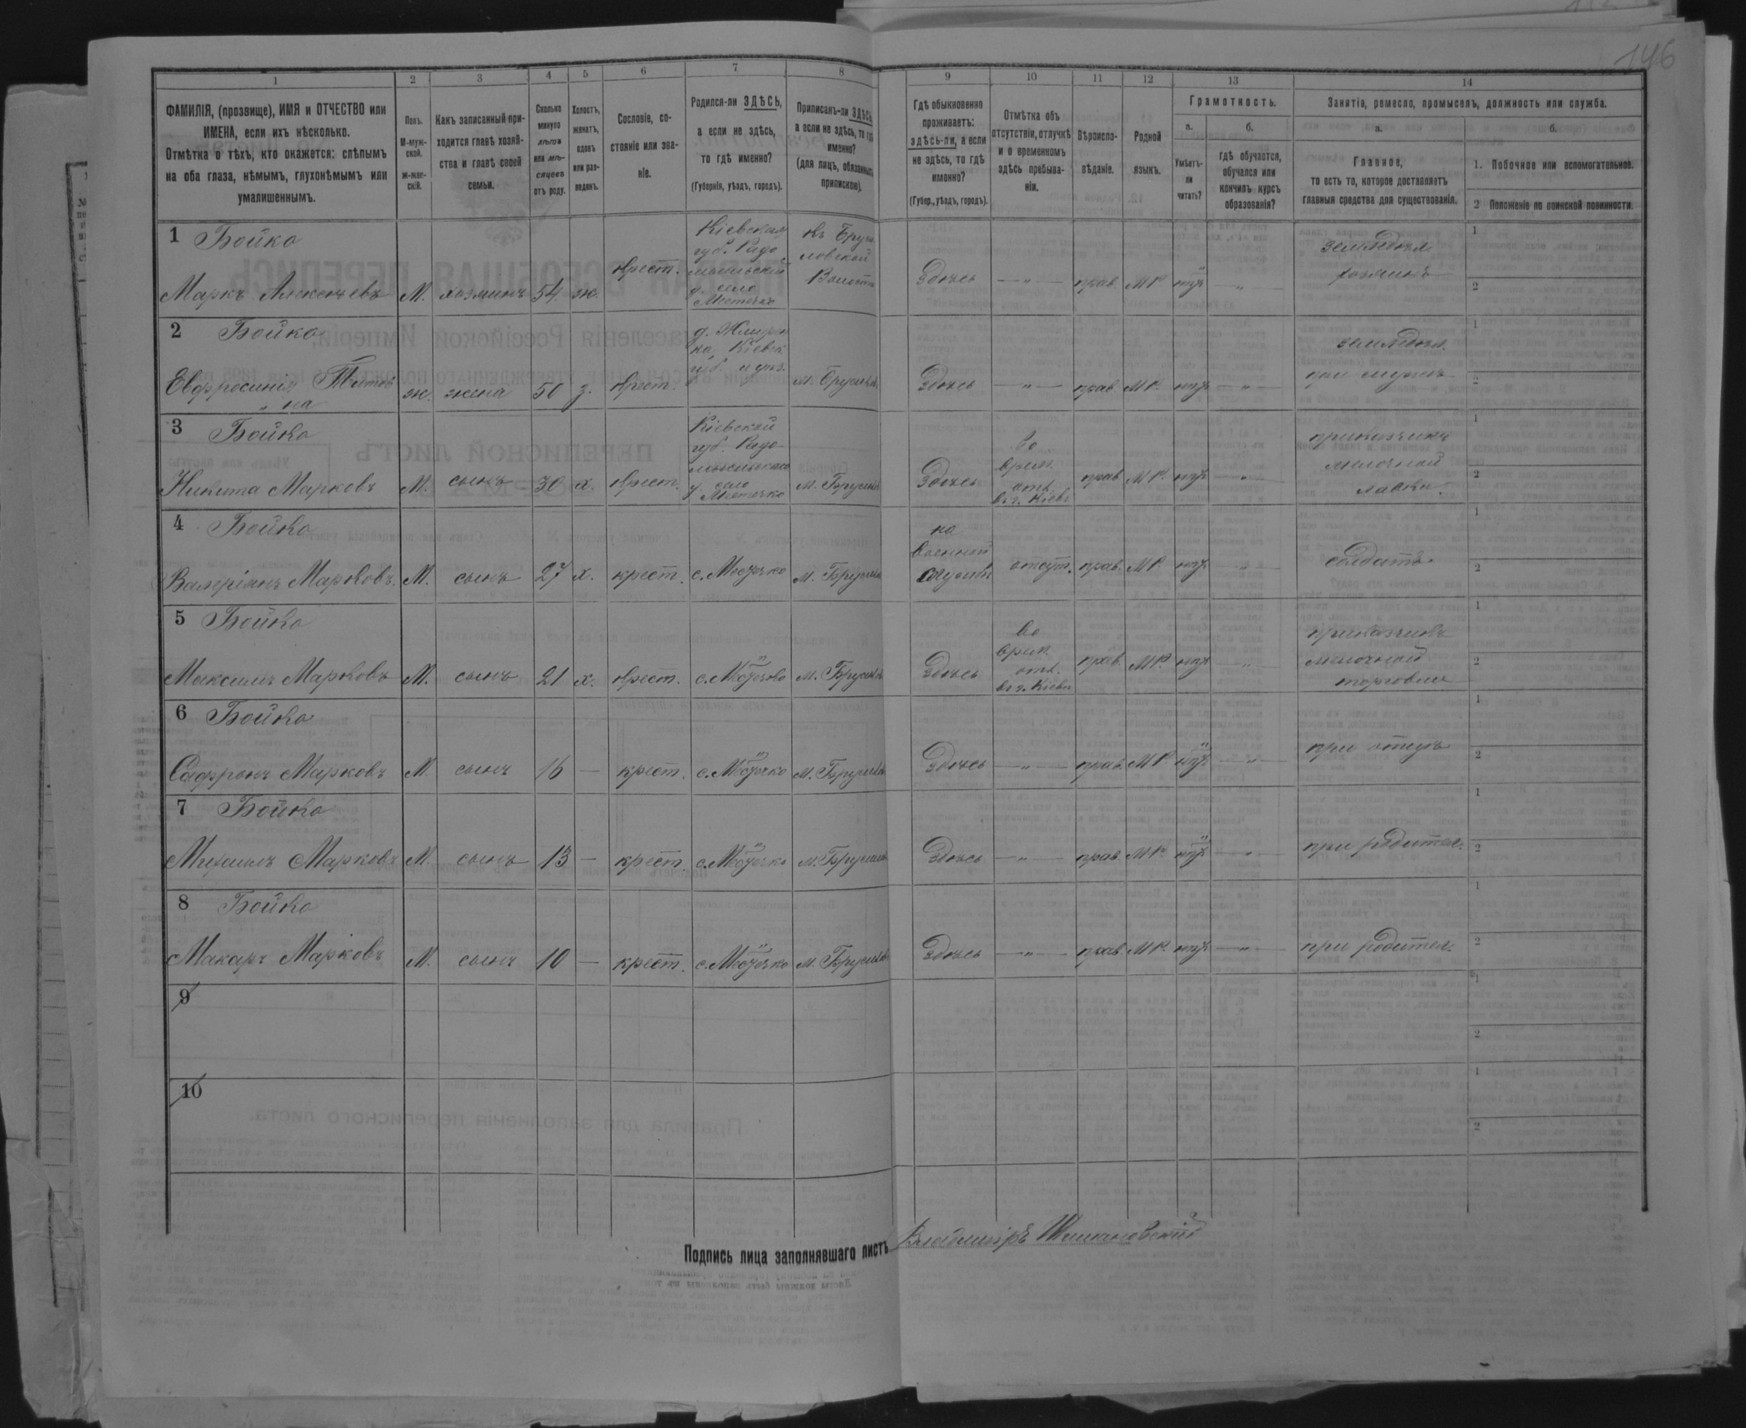 146
1 2 3 4 5 6 7 8 9 10 11 12 13 14
ФАМИЛІЯ, (прозвище), ИМЯ и ОТЧЕСТВО или ИМЕНА, если ихъ нѣсколько.
Отмѣтка о тѣхъ, кто окажется: слѣпымъ на оба глаза, нѣмымъ, глухонѣмымъ или умалишеннымъ.
Полъ.
М-муж-
ской.
Ж-жен-
скій.
Какъ записанный при-
ходится главѣ хозяй-
ства и главѣ своей
семьи.
Сколько
минуло
лѣтъ
или мѣ-
сяцевъ
отъ роду.
Холостъ,
женатъ,
вдовъ
или раз-
веденъ.
Сословіе, со-
стояніе или зва-
ніе.
Родился-ли ЗДѢСЬ,
а если не здѣсь,
то гдѣ именно?
(Губернія, уѣздъ, городъ).
Приписанъ-ли ЗДѢСЬ,
а если не здѣсь, то гдѣ
именно?
(для лицъ, обязанныхъ
припискою).
Гдѣ обыкновенно
проживаетъ:
здѣсь-ли, а если
не здѣсь, то гдѣ
именно?
(Губер., уѣздъ, городъ).
Отмѣтка объ
отсутствіи, отлучкѣ
и о временномъ
здѣсь пребыва-
ніи.
Вѣроиспо-
вѣданіе.
Родной
языкъ.
Грамотность.
а.
Умѣетъ-
ли
читать?
б.
гдѣ обучается,
обучался или
кончилъ курсъ
образованія?
Занятіе, ремесло, промыселъ, должность или служба.
а.
Главное,
то есть то, которое доставляетъ
главныя средства для существованія.
б.
1. Побочное или вспомогательное.
2 Положеніе по воинской повинности.
1 Бойко
Маркъ Алексеевъ М. хозяинъ 54 ж. крест. Кіевская губ. Радомысльскій у. село Местечко Волости Здѣсь — прав. МР. нѣтъ — землѣдѣл. хозяинъ 1 2
2 Бойко
Евфросинія ж. жена 50 з. крест. м. Брусиловъ Здѣсь — прав. МР. нѣтъ — землѣдѣл. при мужѣ 1 2
3 Бойко
Никита Марковъ М. сынъ 30 х. крест. Кіевской губ. село Местечко м. Брусиловъ Здѣсь во врем. отл. в г. Кіевъ прав. МР. нѣтъ — приказчикъ мелочной лавки. 1 2
4 Бойко
Валеріанъ Марковъ М. сынъ 27 х. крест. с. Мѣстечко м. Брусиловъ на военной службѣ отсут. прав. МР. нѣтъ — солдатъ 1 2
5 Бойко
Максимъ Марковъ М. сынъ 21 х. крест. с. Мѣстечко м. Брусиловъ Здѣсь во врем. отл. в г. Кіевъ прав. МР. нѣтъ — приказчикъ мелочной торговли 1 2
6 Бойко
Сафронъ Марковъ М. сынъ 16 — крест. с. Мѣстечко м. Брусиловъ Здѣсь — прав. МР. нѣтъ — при отцѣ 1 2
7 Бойко
Михаилъ Марковъ М. сынъ 13 — крест. с. Мѣстечко м. Брусиловъ Здѣсь — прав. МР. нѣтъ — при родител. 1 2
8 Бойко
Макаръ Марковъ М. сынъ 10 — крест. с. Мѣстечко м. Брусиловъ Здѣсь — прав. МР. нѣтъ — при родител. 1 2
9 1 2
10 1 2
Подпись лица заполнявшаго листъ Владиміръ